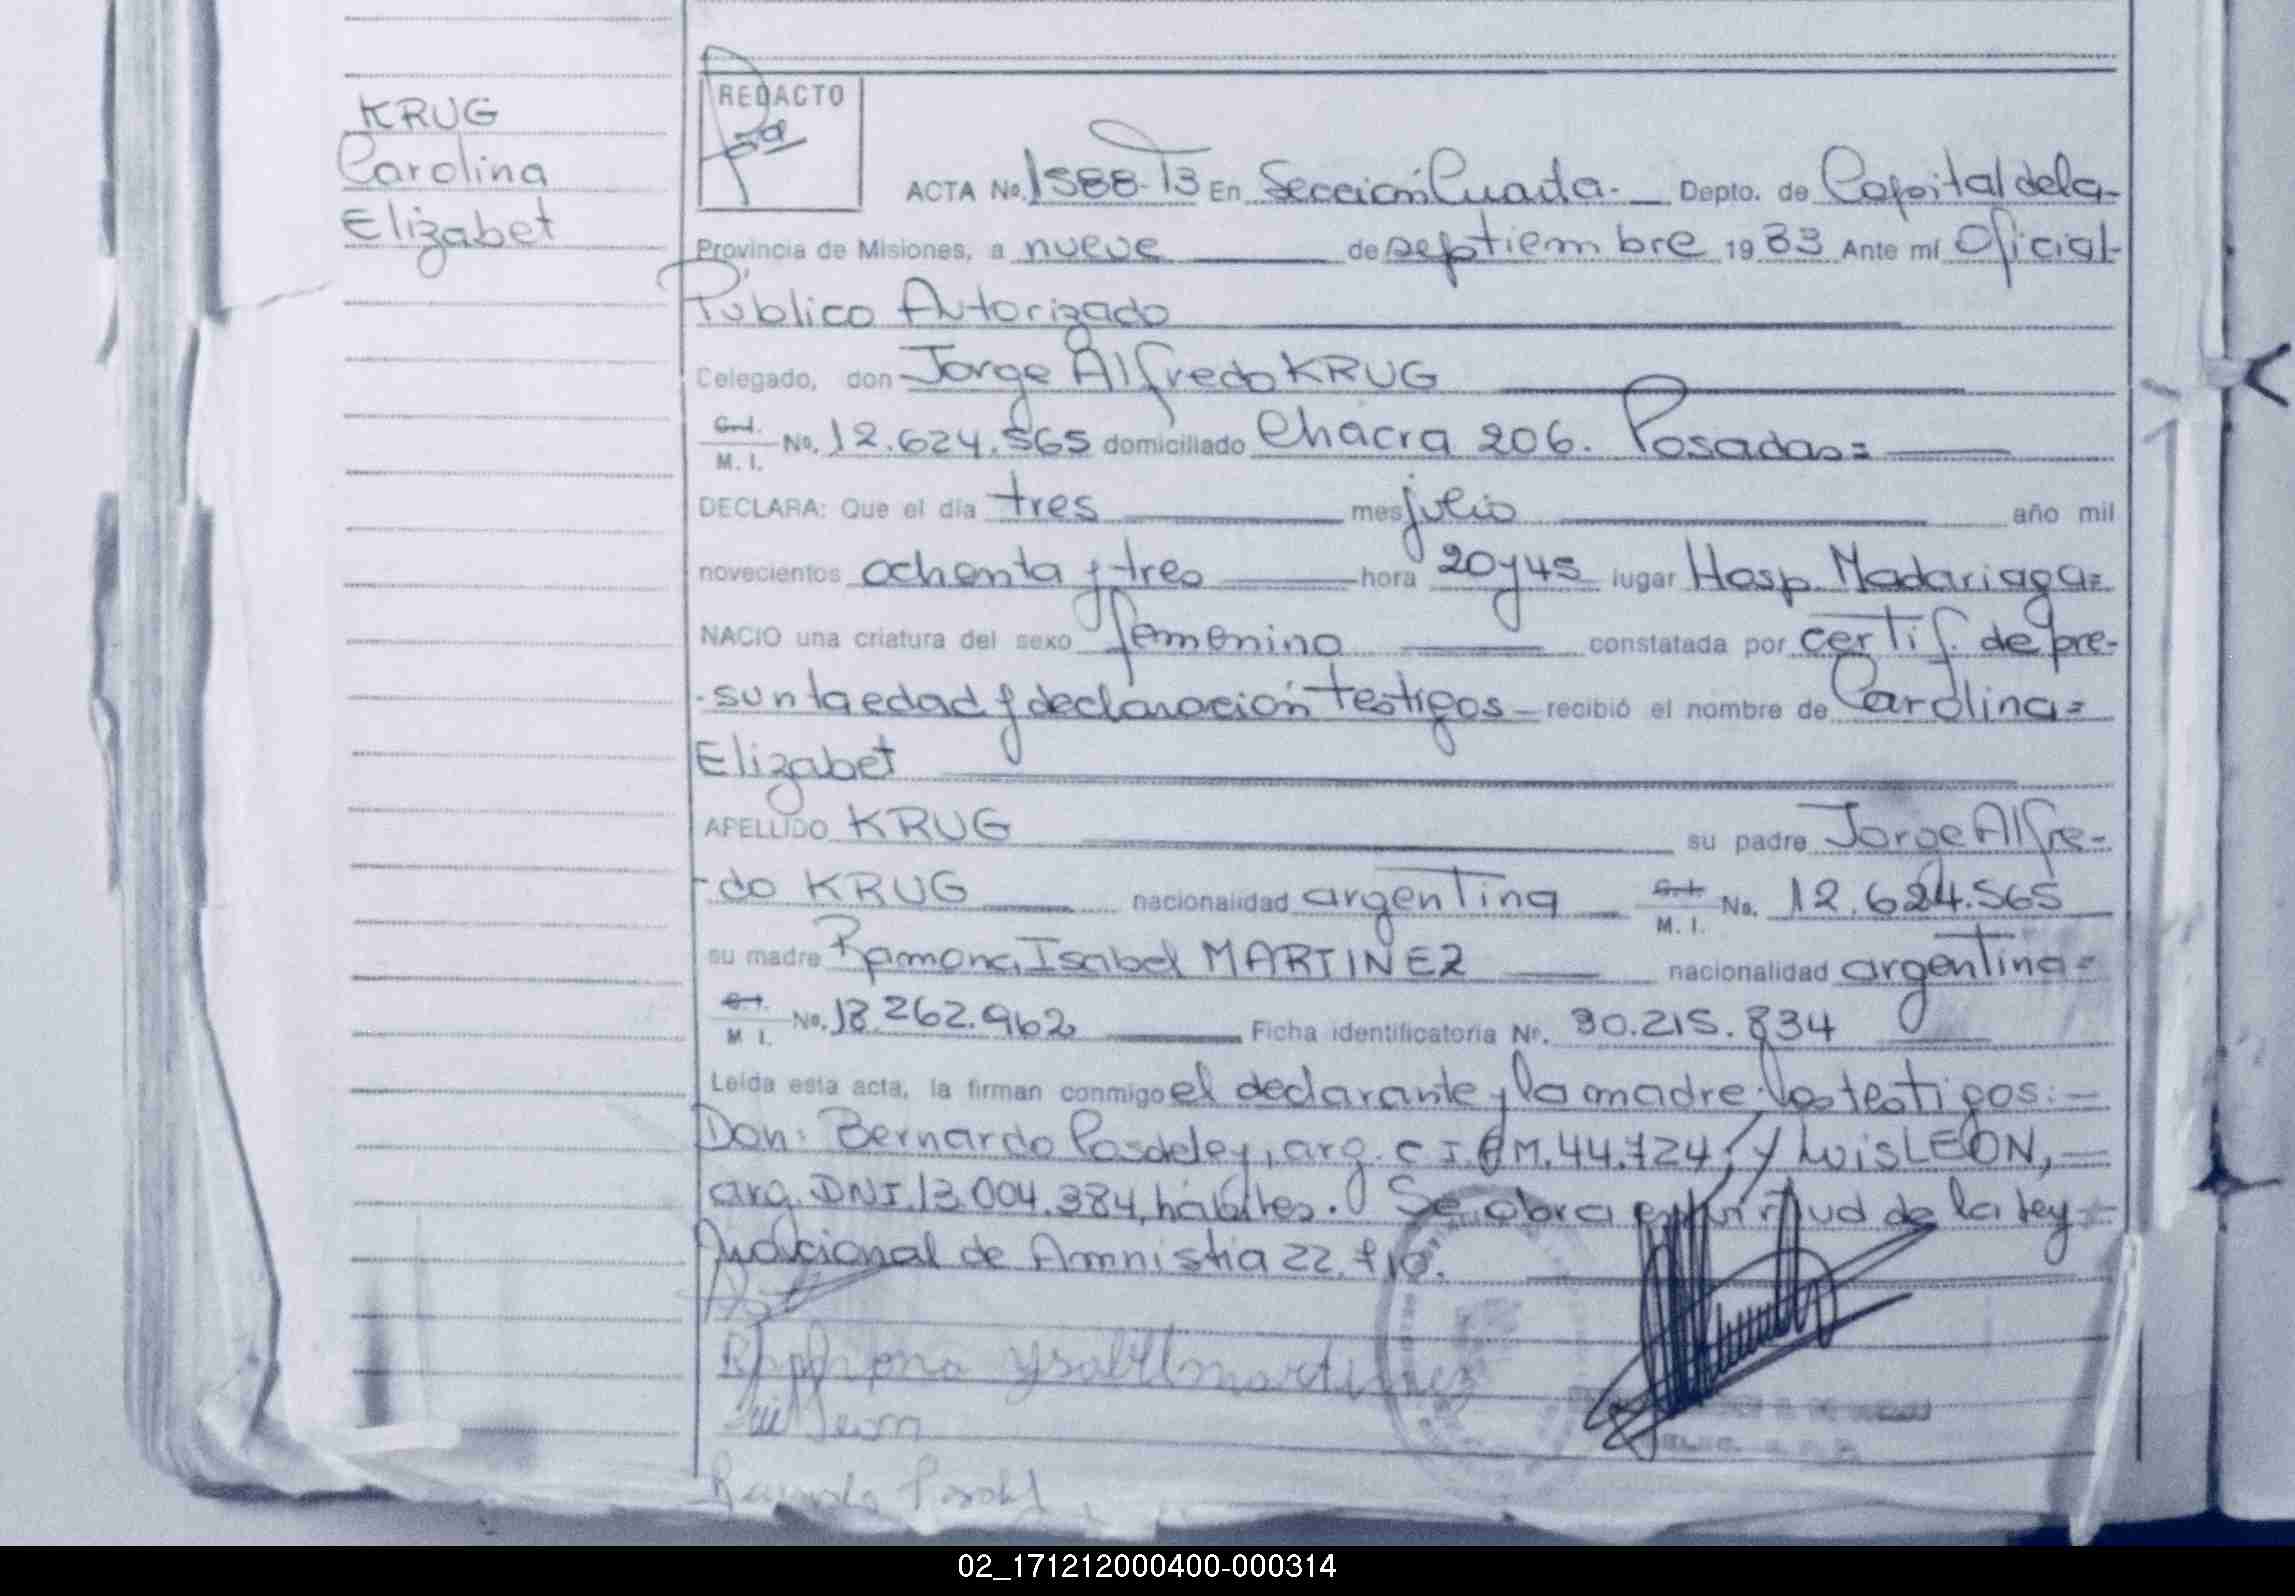 KRUG
Carolina
Elizabet
REDACTO
ACTA No. 1588-T3 En Sección Cuarta.- Depto. de Capital de la-
Provincia de Misiones, a nueve de septiembre 1983 Ante mí Oficial-
Público Autorizado
Delegado, don Jorge Alfredo KRUG
M. I. No. 12.624.565 domiciliado Chacra 206. Posadas=
DECLARA: Que el día tres mes julio año mil
novecientos ochenta y tres hora 20y45 lugar Hosp. Madariaga=
NACIO una criatura del sexo femenino constatada por certif. de pre-
-sunta edad y declaración testigos- recibió el nombre de Carolina=
Elizabet
APELLIDO KRUG su padre Jorge Alfre-
-do KRUG nacionalidad argentina M. I. No. 12.624.565
su madre Ramona Isabel MARTINEZ nacionalidad argentina=
M. I. No. 18.262.962 Ficha identificatoria Nº. 30.215.834
Leída esta acta, la firman conmigo el declarante y la madre. Los testigos:-
Don: Bernardo Posdeley, arg. C.I. M. 44.724, y Luis LEON,-
arg. DNI. 13.004.384, hábiles. Se obra en virtud de la ley
Nacional de Amnistia 22.710.
Ramona Ysabel martinez
Luis Leon
02_171212000400-000314